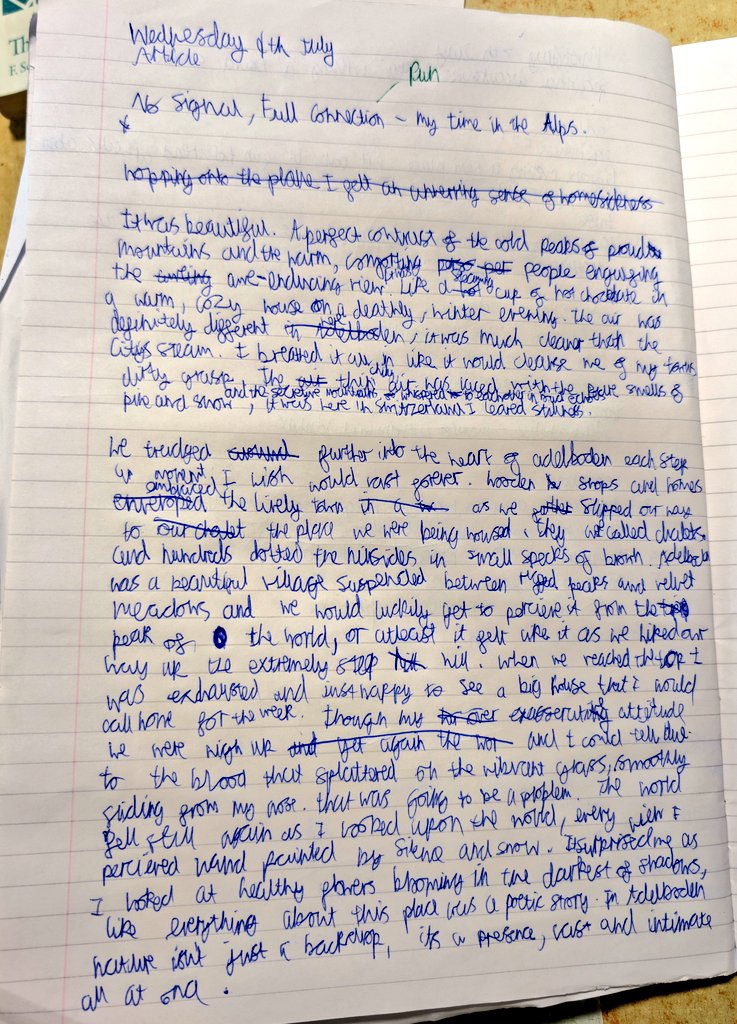 Th
F. S
Wednesday 9th July
Article
Pun
No Signal, Full Connection - my time in the Alps.
*
hopping onto the plane I felt an unerring sense of homesickness
It was beautiful. A perfect contrast of the cold peaks of proud
mountains and the warm, comforting people engulfing
the awe-enducing view. Like a steaming cup of hot chocolate in
a warm, cozy house on a deathly, winter evening. The air was
definitely different here, it was much cleaner than the
Citys steam. I breathed it all in like it would cleanse me of my towns
dirty grasp. The chilly air was laced with the pure smells of
pine and snow, and the secretive mountains whispered to eachother in echoes it was here in Switzerland I leared stillness.
We trudged around further into the heart of adelboden each step
a moment I wish would last forever. Wooden shops and homes
enveloped embraced the lively town as we slipped our way
to our chalet the place we were being housed, they we called chalets
and hundreds dotted the hillsides in small specks of brown. Adelboden
was a beautiful village suspended between peaks and velvet
meadows and we would luckily get to percieve it from the
peak of the world, or atleast it felt like it as we hiked our
way up the extremely steep hill. When we reached the top I
was exhausted and just happy to see a big house that I would
call home for the week. Though my attitude
we were high up and yet again the and I could tell due
to the blood that splattered on the vibrant grass, smoothly
sliding from my nose. that was going to be a problem. The world
fell still again as I looked upon the world, every view I
percieved hand painted by silence and snow. It surprised me as
I looked at healthy flowers blooming in the darkest of shadows,
like everything about this place was a poetic story. In Adelboden
nature isn't just a backdrop, its a presence, vast and intimate
all at once.